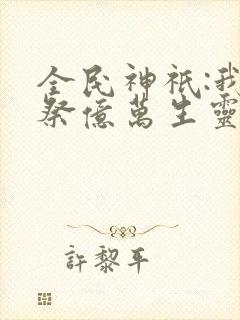 全民神祇:我
祭億萬生靈
許黎平